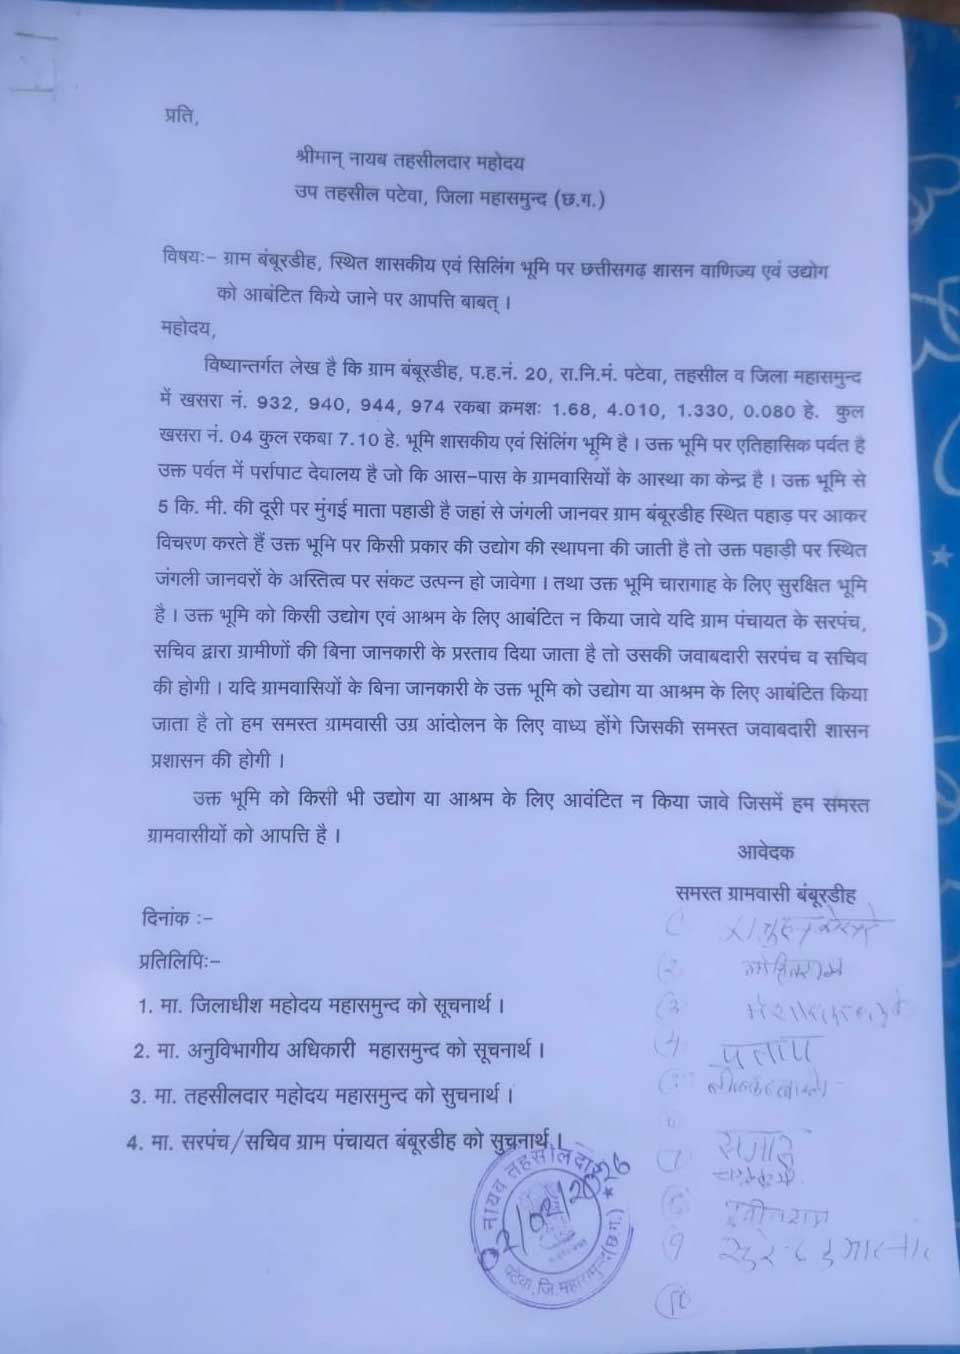 प्रति,
श्रीमान् नायब तहसीलदार महोदय
उप तहसील पटेवा, जिला महासमुन्द (छ.ग.)
विषयः- ग्राम बंबूरडीह, स्थित शासकीय एवं सिलिंग भूमि पर छत्तीसगढ़ शासन वाणिज्य एवं उद्योग
को आबंटित किये जाने पर आपत्ति बाबत् ।
महोदय,
विष्यान्तर्गत लेख है कि ग्राम बंबूरडीह, प.ह.नं. 20, रा.नि.मं. पटेवा, तहसील व जिला महासमुन्द
में खसरा नं. 932, 940, 944, 974 रकबा क्रमशः 1.68, 4.010, 1.330, 0.080 हे. कुल
खसरा नं. 04 कुल रकबा 7.10 हे. भूमि शासकीय एवं सिंलिंग भूमि है । उक्त भूमि पर एतिहासिक पर्वत है
उक्त पर्वत में पर्रापाट देवालय है जो कि आस-पास के ग्रामवासियों के आस्था का केन्द्र है । उक्त भूमि से
5 कि. मी. की दूरी पर मुंगई माता पहाडी है जहां से जंगली जानवर ग्राम बंबूरडीह स्थित पहाड़ पर आकर
विचरण करते हैं उक्त भूमि पर किसी प्रकार की उद्योग की स्थापना की जाती है तो उक्त पहाड़ी पर स्थित
जंगली जानवरों के अस्तित्व पर संकट उत्पन्न हो जावेगा । तथा उक्त भूमि चारागाह के लिए सुरक्षित भूमि
है । उक्त भूमि को किसी उद्योग एवं आश्रम के लिए आबंटित न किया जावे यदि ग्राम पंचायत के सरपंच,
सचिव द्वारा ग्रामीणों की बिना जानकारी के प्रस्ताव दिया जाता है तो उसकी जवाबदारी सरपंच व सचिव
की होगी । यदि ग्रामवासियों के बिना जानकारी के उक्त भूमि को उद्योग या आश्रम के लिए आबंटित किया
जाता है तो हम समस्त ग्रामवासी उग्र आंदोलन के लिए वाध्य होंगे जिसकी समस्त जवाबदारी शासन
प्रशासन की होगी ।
उक्त भूमि को किसी भी उद्योग या आश्रम के लिए आवंटित न किया जावे जिसमें हम समस्त
ग्रामवासीयों को आपत्ति है ।
आवेदक
समस्त ग्रामवासी बंबूरडीह
दिनांक :-
प्रतिलिपिः-
1. मा. जिलाधीश महोदय महासमुन्द को सूचनार्थ ।
2. मा. अनुविभागीय अधिकारी महासमुन्द को सूचनार्थ ।
3. मा. तहसीलदार महोदय महासमुन्द को सुचनार्थ ।
4. मा. सरपंच/सचिव ग्राम पंचायत बंबूरडीह को सुचनार्थ ।
प्रताप
नायब तहसीलदार
02/02/2026
पटेवा, जि.महासमुन्द (छ.ग.)